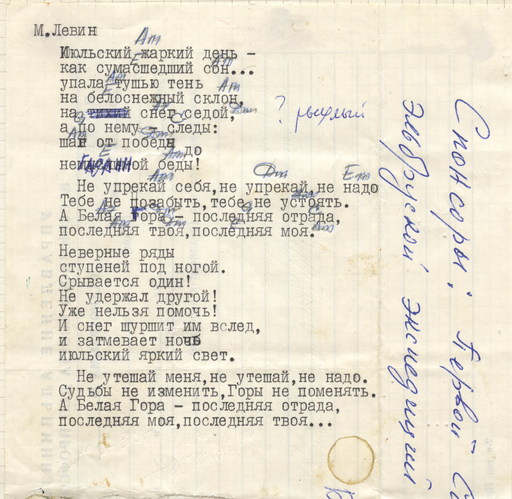 М.Левин
Am
Июльский жаркий день –
E Am
как сумасшедший сон...
Am
упала тушью тень
E Am
на белоснежный склон,
на тихий снег седой,
? рыхлый
а по нему следы:
шаг от побед до
E Am
нежданной беды!
Am Dm Em
Не упрекай себя,не упрекай,не надо
Тебе не позабыть,тебе не устоять.
А Белая Гора – последняя отрада,
последняя твоя,последняя моя.
Неверные ряды
ступеней под ногой.
Срывается один!
Не удержал другой!
Уже нельзя помочь!
И снег шуршит им вслед,
и затмевает ночь
июльский яркий свет.
Не утешай меня,не утешай,не надо.
Судьбы не изменить,Горы не поменять.
А Белая Гора – последняя отрада,
последняя моя,последняя твоя...
Спонсоры: Первой
эльбруской экспедиций